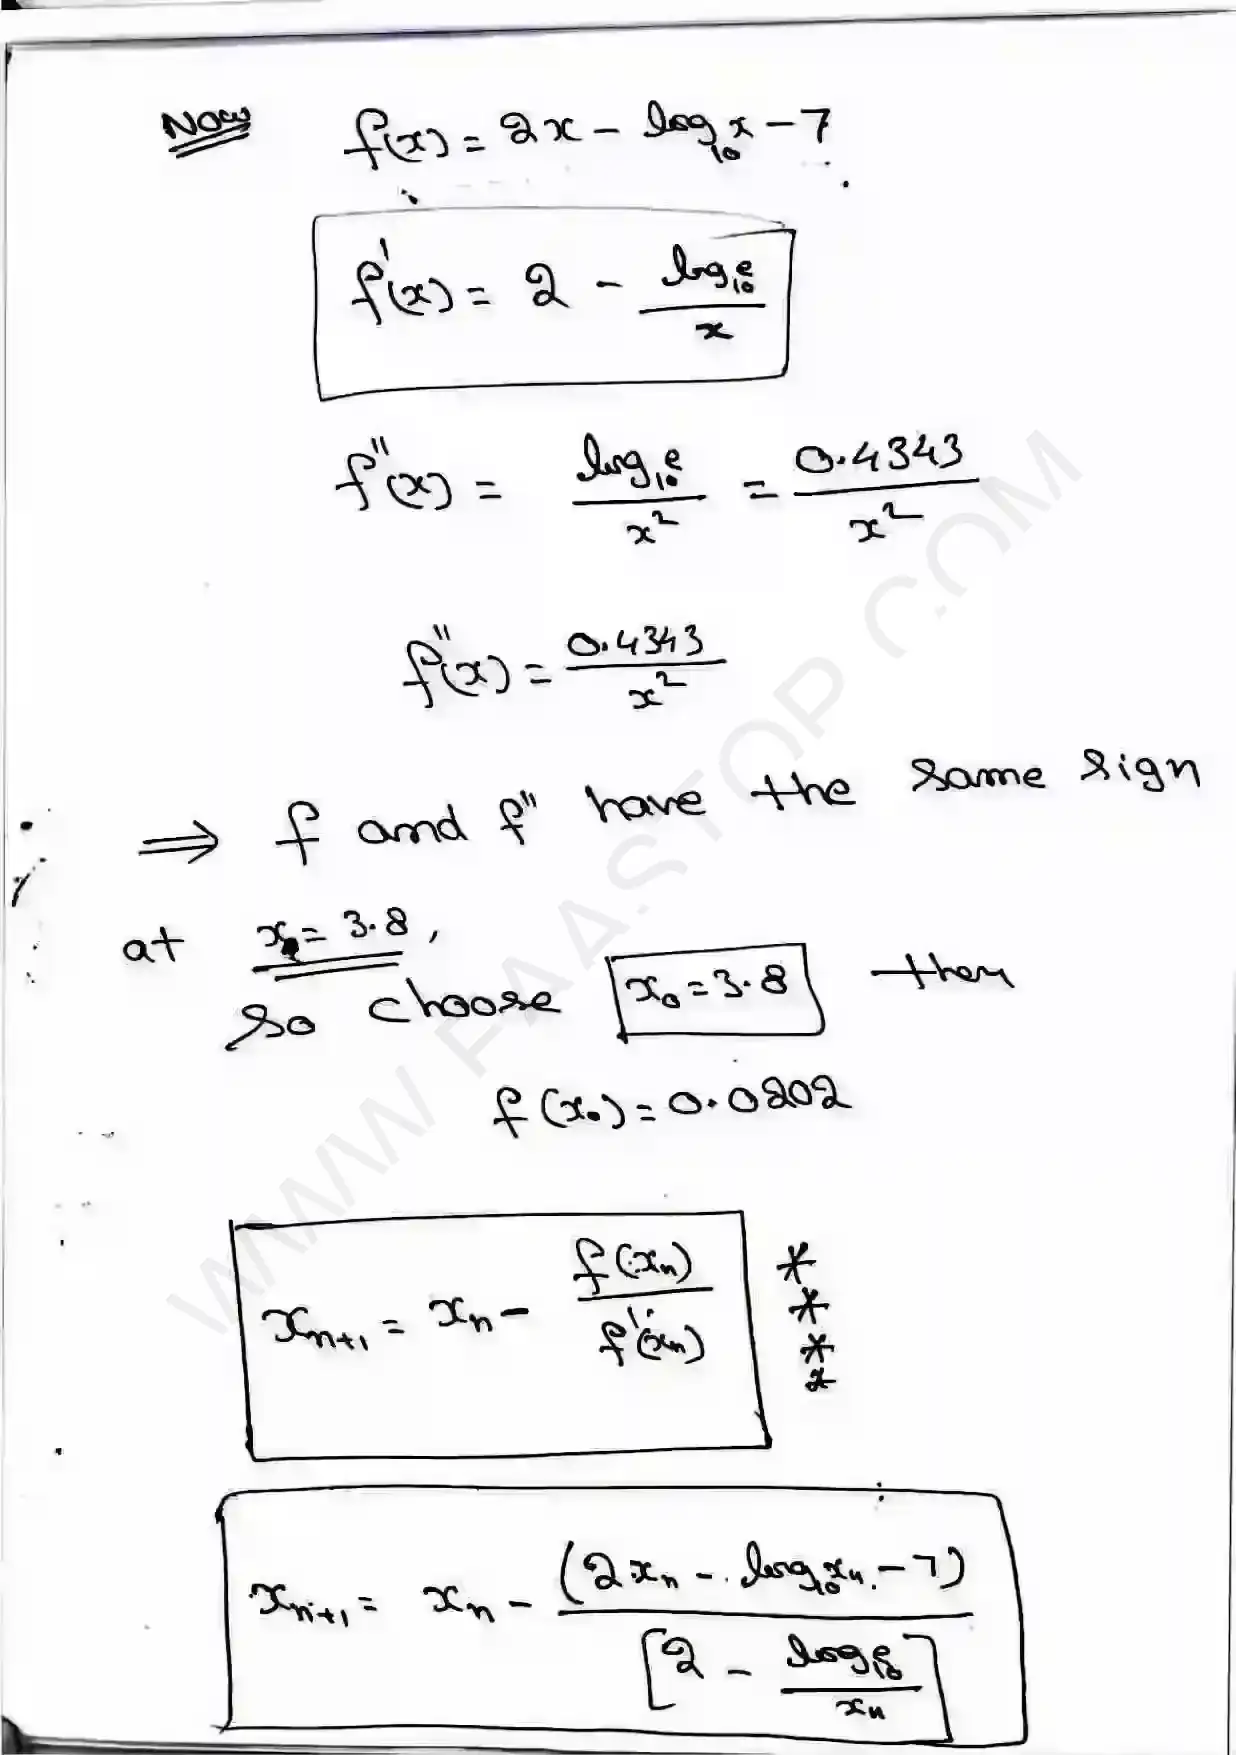 Now f(x) = 2x - log₁₀x - 7
f'(x) = 2 - log₁₀e / x
f''(x) = log₁₀e / x² = 0.4343 / x²
f''(x) = 0.4343 / x²
⟹ f and f'' have the same sign
at x = 3.8,
So choose x₀ = 3.8 then
f(x₀) = 0.0202
xₙ₊₁ = xₙ - f(xₙ) / f'(xₙ) ****
xₙ₊₁ = xₙ - (2xₙ - log₁₀xₙ - 7) / [2 - log₁₀e / xₙ]
WWW.FAASTOP.COM